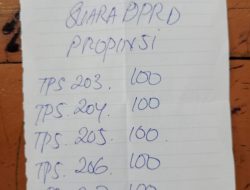 SUARA DPRD
PROPINSI
TPS. 203. 100
TPS. 204. 100
TPS. 205. 100.
TPS. 206. 100